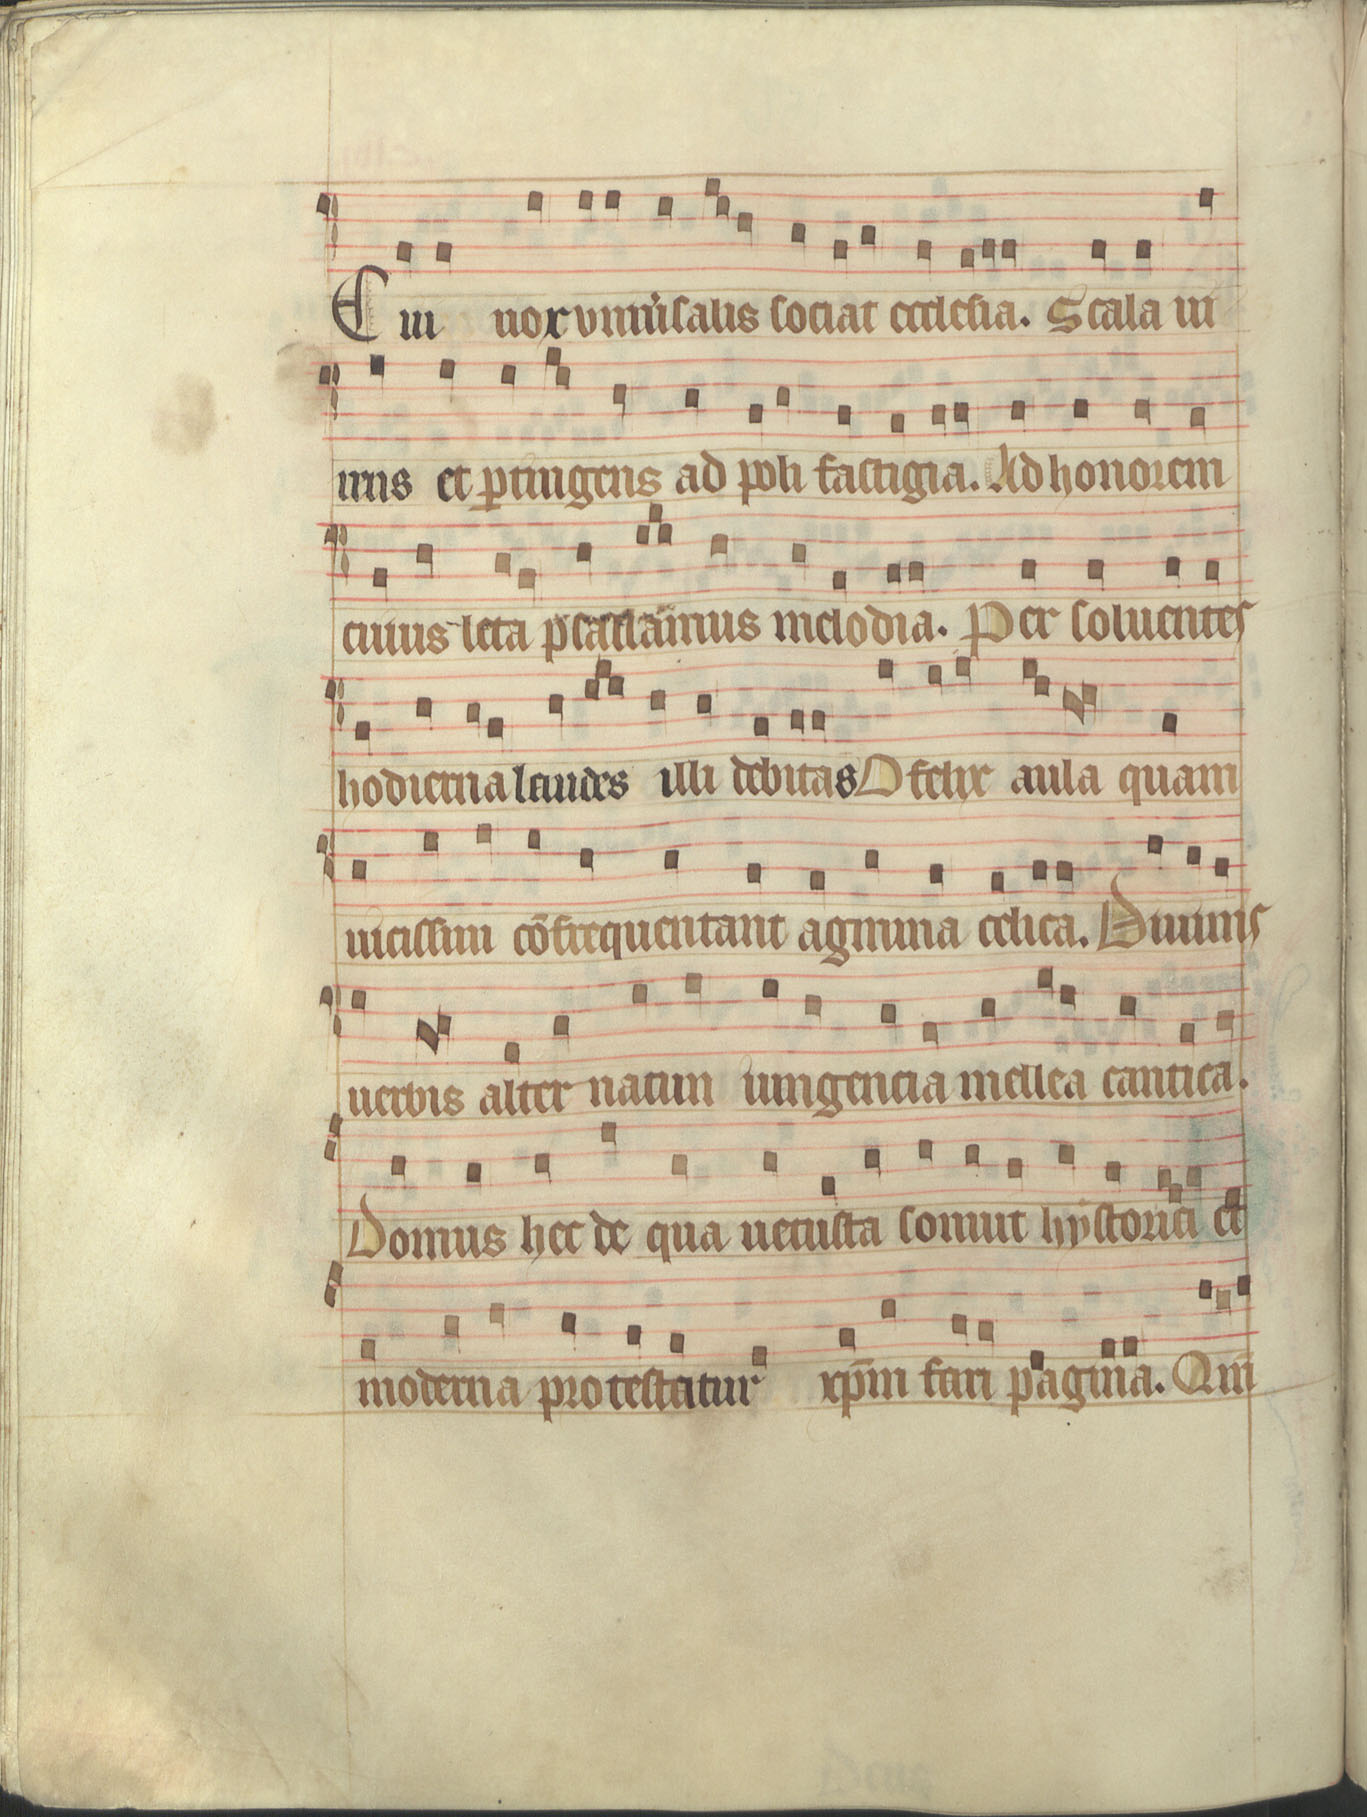 Cui uox vniuersalis sociat ecclesia. Scala ui
nus et ptingens ad poli fastigia. Ad honorem
cuius leta psallamus melodia. Per soluentes
hodierna laudes illi debitas O felix aula quam
uicissim cōfrequentant agmina celica. Diuinis
uerbis alter natim iungencia mellea cantica.
Domus hec de qua uetusta sonuit hystoria et
moderna protestatur xpm fari pagina. Qm̄